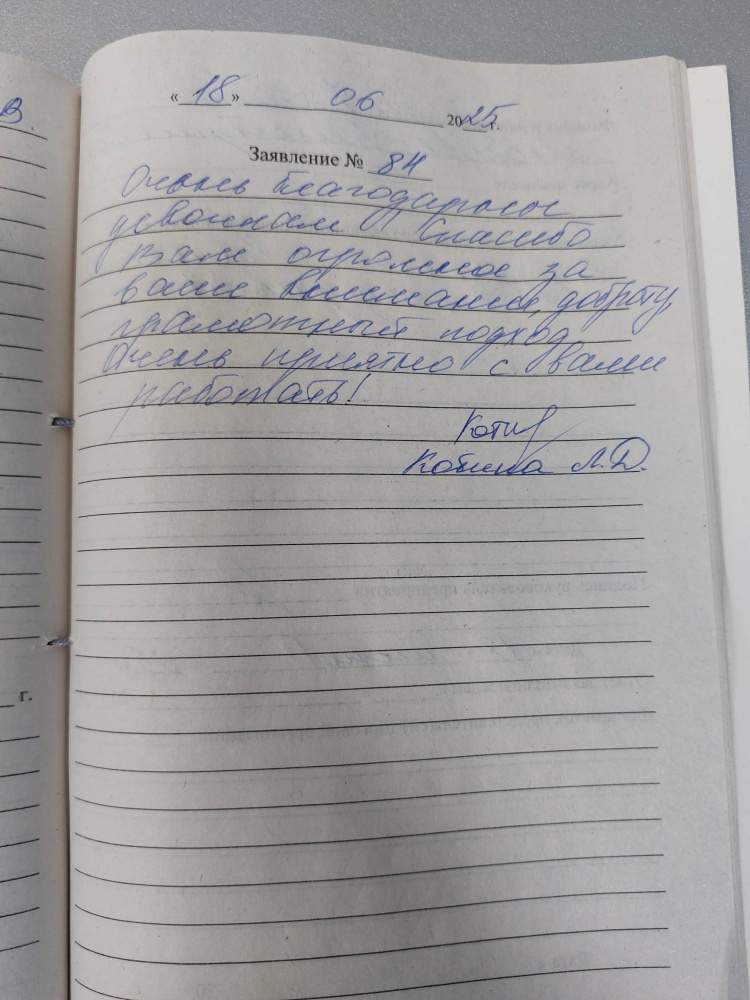 В.
«18» 06 2025 г.
Заявление № 84
Очень благодарны
девочкам! Спасибо
Вам огромное за
ваше внимание, доброту,
грамотный подход
Очень приятно с вами
работать!
Котина Л.Д.
г.